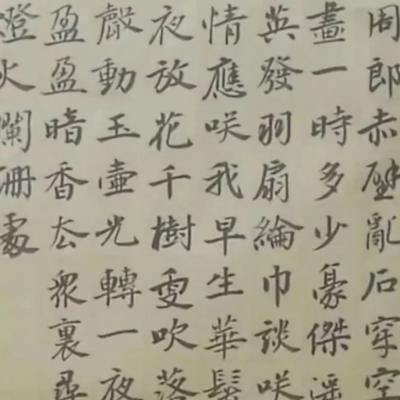 周郎赤壁亂石穿空
畫一時多少豪傑遥
英發羽扇綸巾談咲
情應咲我早生華髮
夜放花千樹更吹落
聲動玉壺光轉一夜
盈盈暗香去衆裏尋
燈火闌珊處